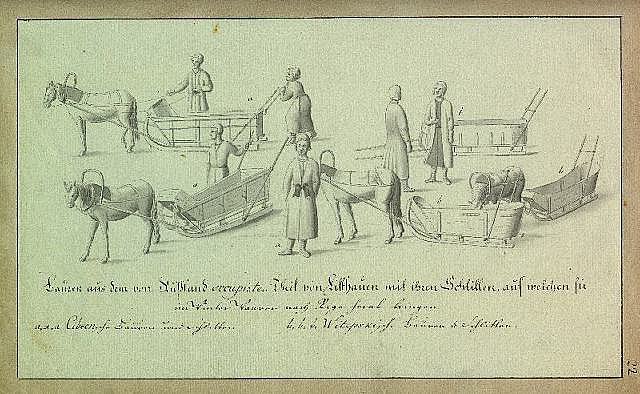 Bauren aus dem von Rußland occupirten Theil von Litthauen mit ihren Schlitten, auf welchen sie
im Winter Waaren nach Riga herab bringen
a.a.a. che Bauren und Schlitten. b.b.b. Witepskische Bauren u Schlitten.
a
a
a
b
b
22